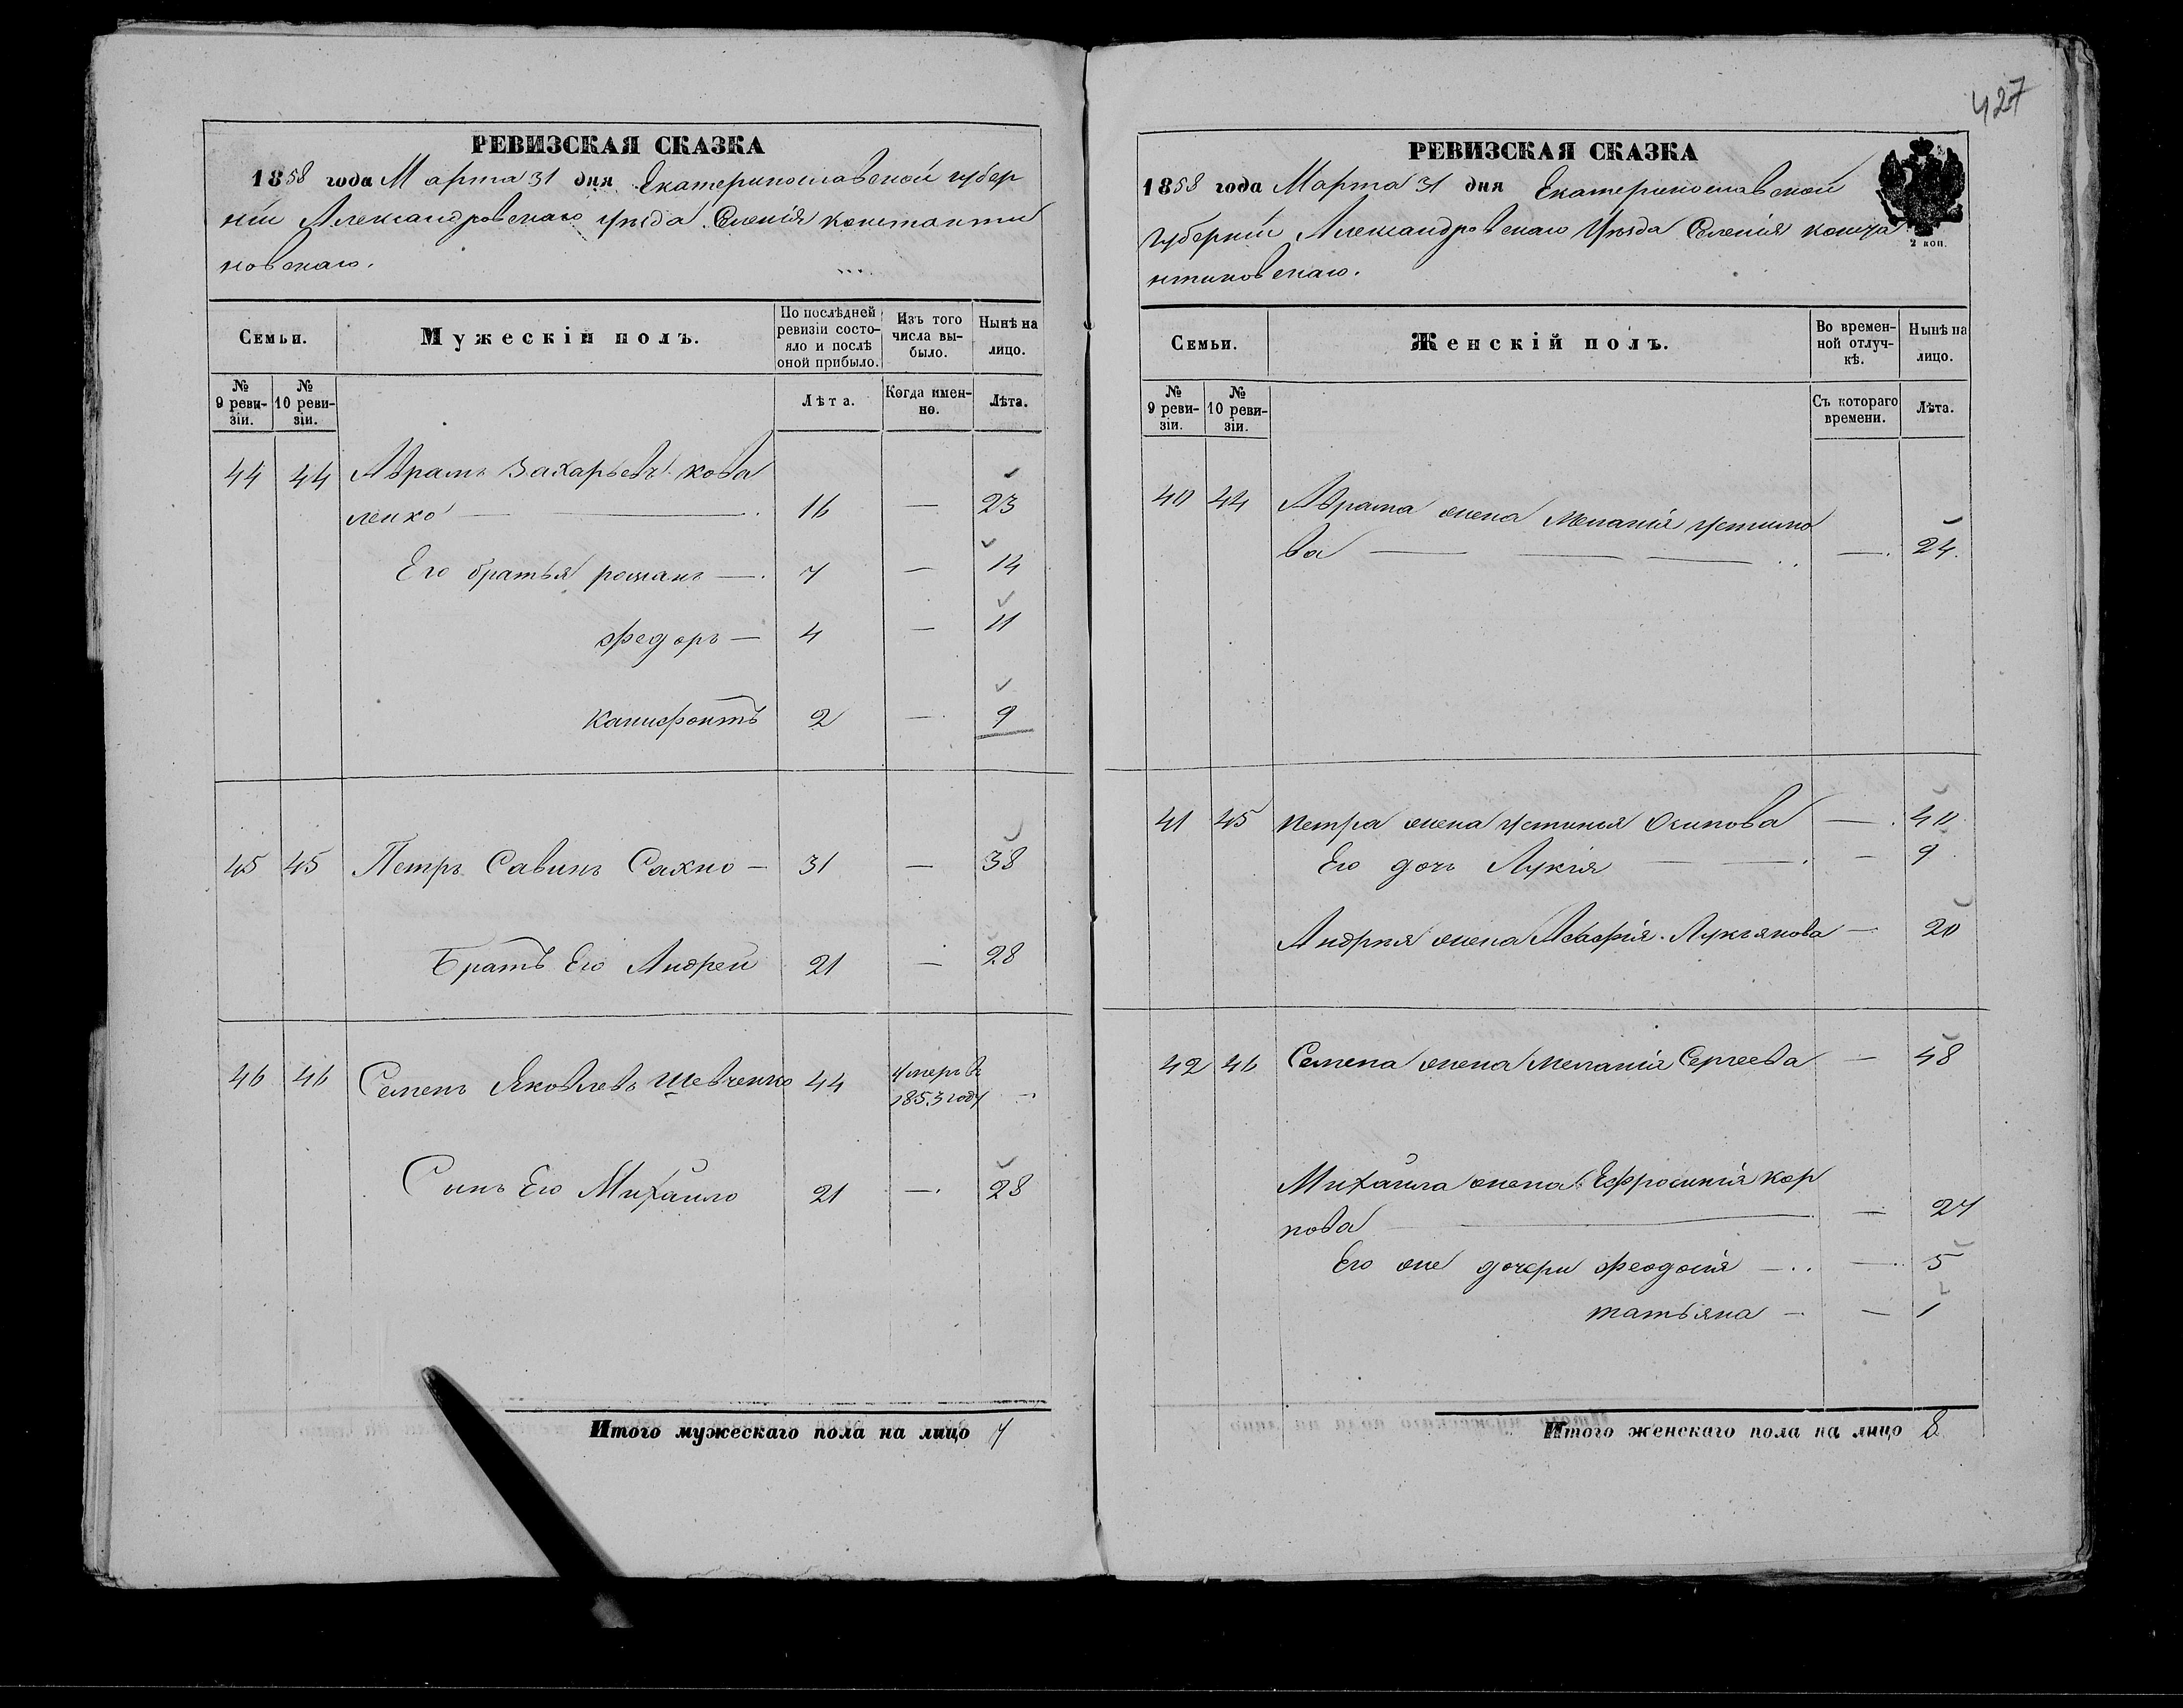 427
РЕВИЗСКАЯ СКАЗКА
1858 года Марта 31 дня Екатеринославской губер
ніи Александровскаго уѣзда Селенія константи
новскаго.
Семьи.
Мужескій полъ.
По послѣдней ревизіи состояло и послѣ оной прибыло.
Изъ того числа выбыло.
Нынѣ на лицо.
№ 9 ревизіи.
№ 10 ревизіи.
Лѣта.
Когда именно.
Лѣта.
44 44 Абрамъ Захарьевъ кова
ленко — 16 — 23
Его братья романъ — 7 — 14
Федоръ — 4 — 11
Каписфонтъ 2 — 9
45 45 Петръ Савинъ Сахно — 31 — 38
Братъ Его Андрей 21 — 28
46 46 Семенъ Яковлевъ Шевченко 44 умеръ в 1853 году —
Сынъ Его Михаило 21 — 28
Итого мужескаго пола на лицо 7
РЕВИЗСКАЯ СКАЗКА
1858 года Марта 31 дня Екатеринославской
Губерніи Александровскаго Уѣзда Селенія конста
нтиновскаго.
2 коп.
Семьи.
Женскій полъ.
Во временной отлучкѣ.
Нынѣ на лицо.
№ 9 ревизіи.
№ 10 ревизіи.
Съ котораго времени.
Лѣта.
40 44 Абрама жена Меланія Устимо
ва — — 24.
41 45 Петра жена Устинья Осипова — 40
Его дочь Лукія — — 9
Андрея жена Агафія Лукьянова — 20
42 46 Семена жена Меланія Сергеева — 48
Михаила жена Ефросинія Кар
пова — — 27
Его же дочери Феодосія — — 5
татьяна — — 1
Итого женскаго пола на лицо 8